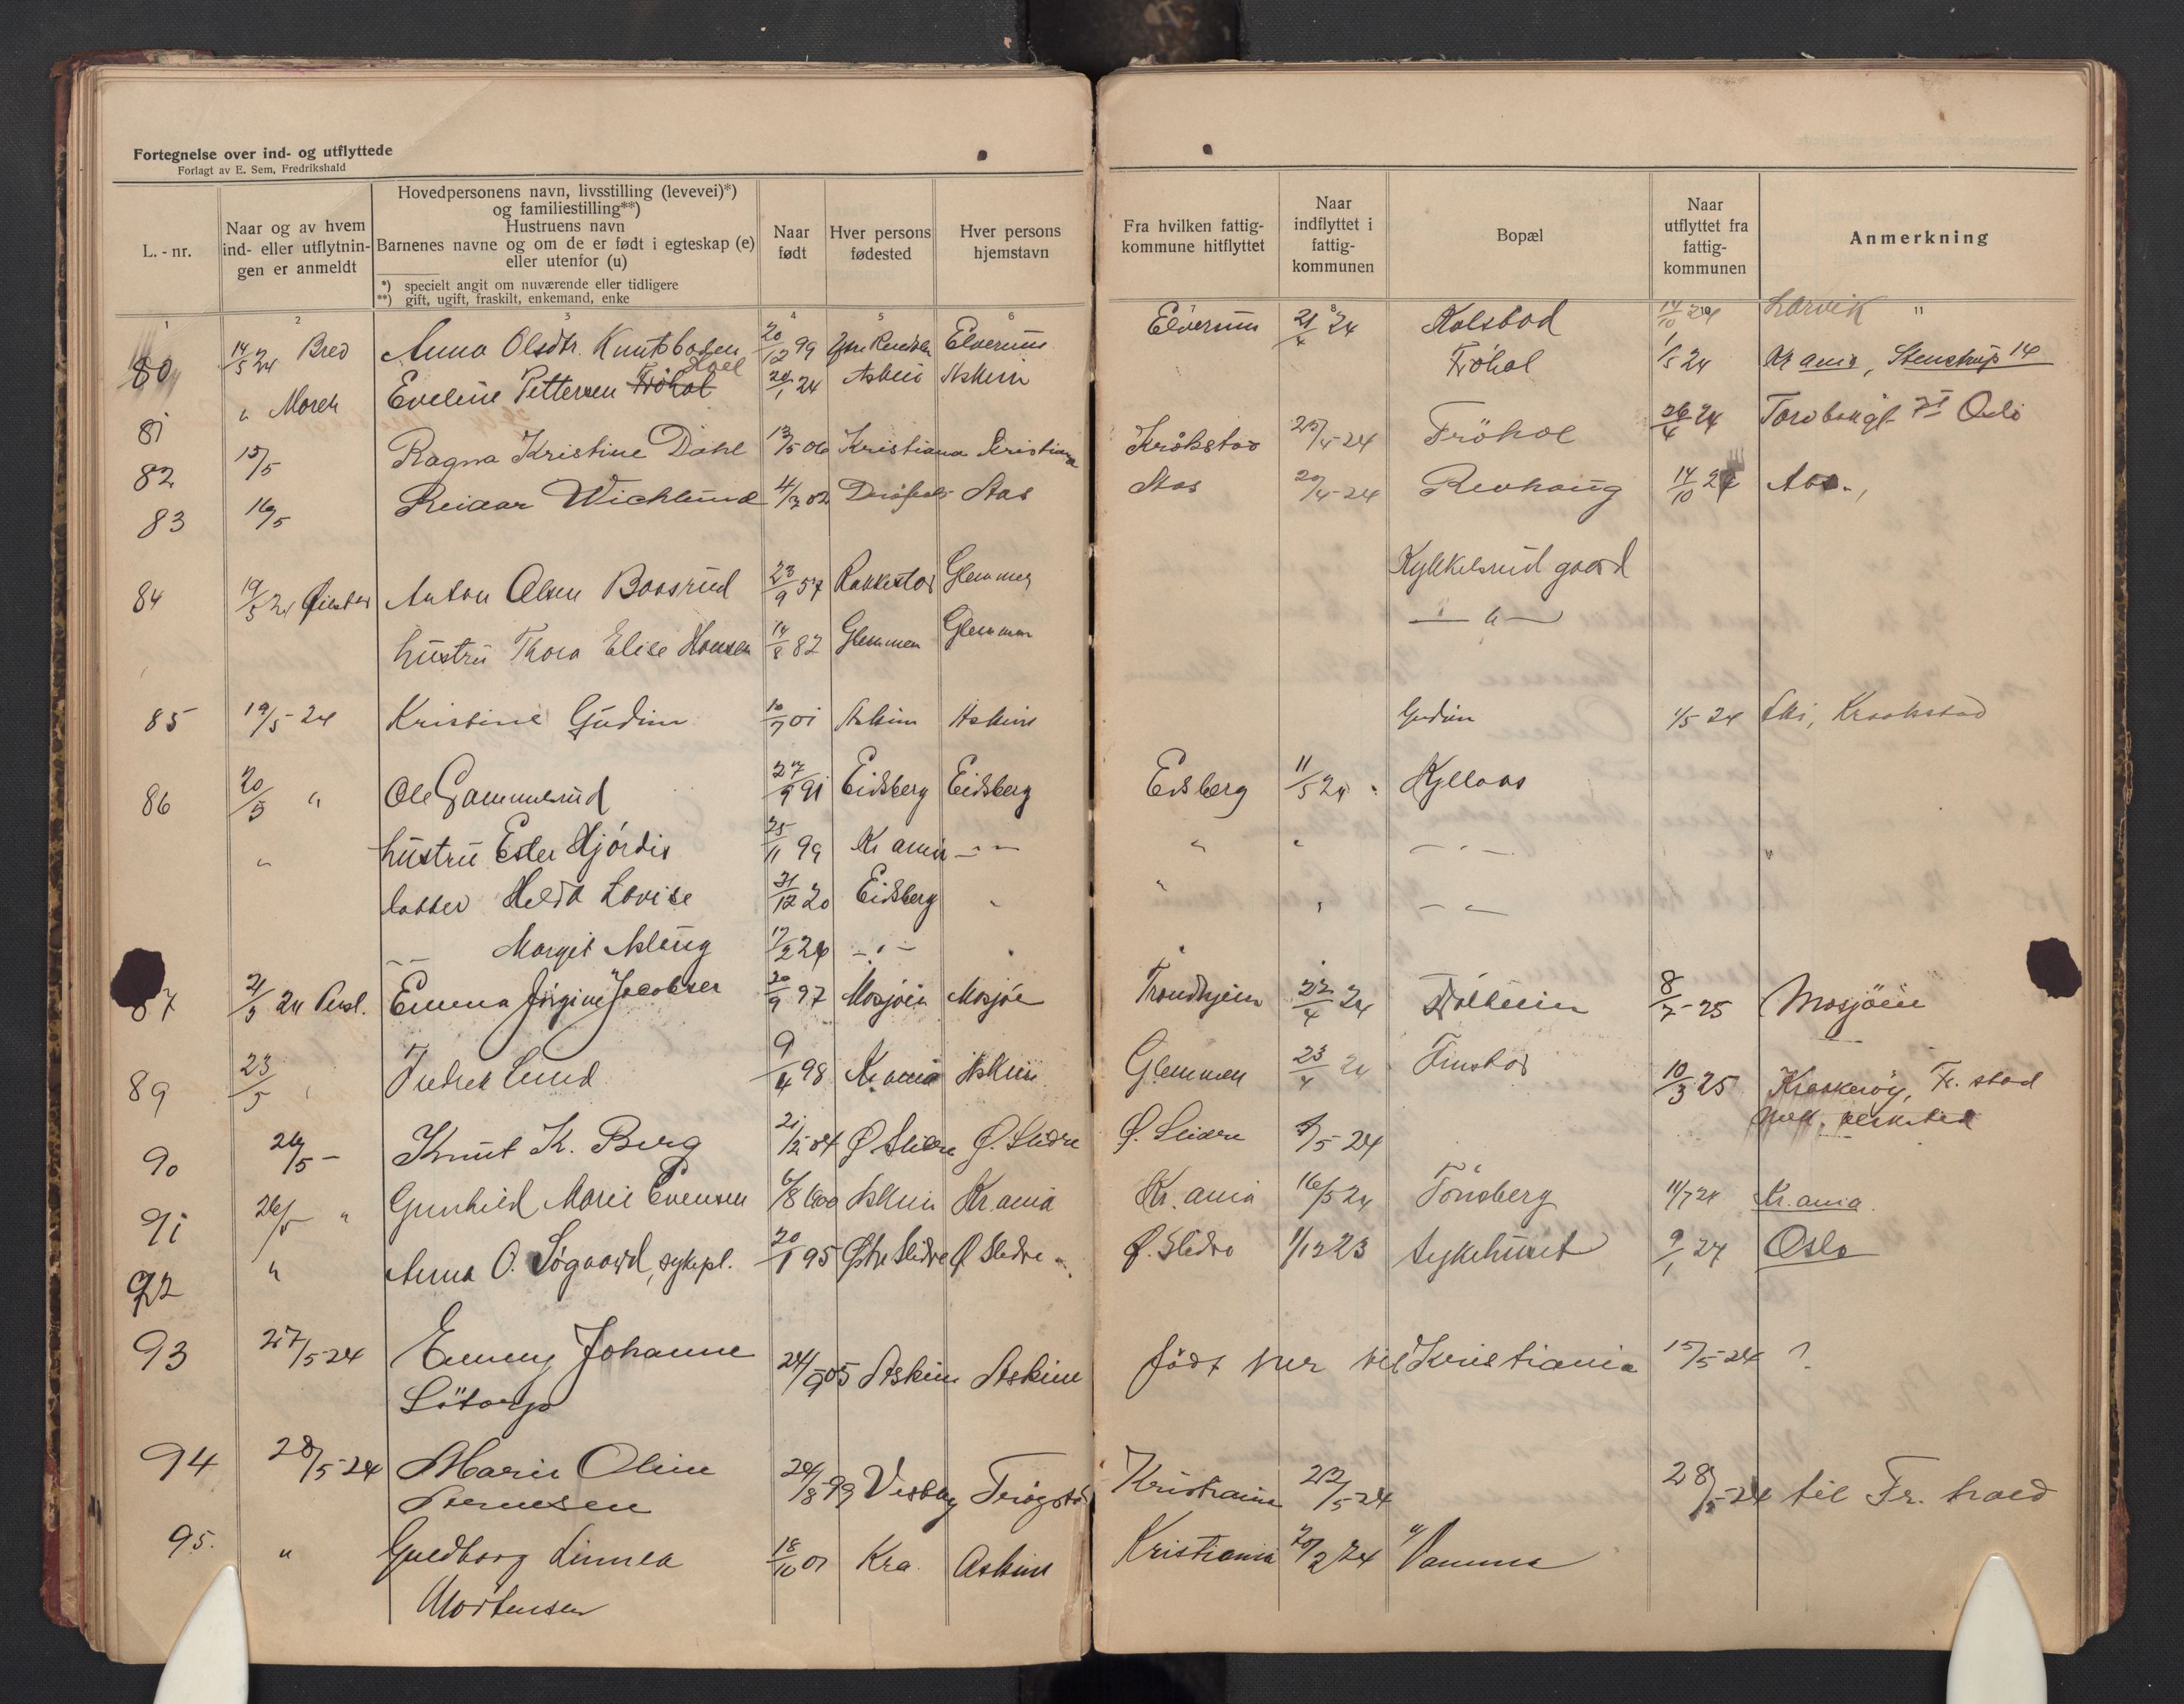 Fortegnelse over ind- og utflyttede
Forlagt av E. Sem, Fredrikshald
L. - nr.
Naar og av hvem
ind- eller utflytnin-
gen er anmeldt
Hovedpersonens navn, livsstilling (levevei)*)
og familiestilling**)
Hustruens navn
Barnenes navne og om de er født i egteskap (e)
eller utenfor (u)
*) specielt angit om nuværende eller tidligere
**) gift, ugift, fraskilt, enkemand, enke
Naar
født
Hver persons
fødested
Hver persons
hjemstavn
Fra hvilken fattig-
kommune hitflyttet
Naar
indflyttet i
fattig-
kommunen
Bopæl
Naar
utflyttet fra
fattig-
kommunen
Anmerkning
1 2 3 4 5 6 7 8 11
80 14/5 24 Bred Anna Olsdtr. Knutsbakken 20/12 99 Elverum Elverum 21/4 24 Kolstad 14/10 24 Larvik
" Moren Eveline Pettersen Fröhol 24/1 24 Askim Askim Fröhol 1/5 24 Kr ania, Stenstrup 14
81 15/5 Ragna Kristine Dahl 13/5 06 Kristiana Kristiana Kråkstad 25/4-24 Fröhol 26/4 24 Oslo
82 16/5 Reidar Wicklund 4/3 02 Aas Aas 20/4-24 Revhaug 14/10 24 Aas
83
84 19/5 24 Anton Olsen Baasrud 23/9 57 Rakkestad Glemmen Kykkelsrud gaard
hustru Thora Elise Hansen 14/8 82 Glemmen Glemmen — " —
85 19/5-24 Kristine Gudim 10/7 01 Askim Askim Gudim 1/5 24 Ski, Kraakstad
86 20/5 " Ole Gammelsrud 27/9 91 Eidsberg Eidsberg Eidsberg 11/5 24 Kyllaas
" hustru Ester Hjördis 25/11 99 Kr ania — " — " " — " — "
datter Helda Lovise 31/12 20 Eidsberg " " " — " —
— " — Margit Aslaug 17/2 24 — " — "
87 21/5 24 Emma Jörgine Jacobsen 20/9 97 Mosjöen Mosjöen Trondhjem 22/4 24 8/7-25 Mosjöen
89 23/5 " Fredrik Lund 9/4 98 Kr ania Askim Glemmen 23/4 24 Finstad 10/3 25 Kraakeröy, Fr. stad
mek. verksted
90 26/5 — Knut K. Berg 21/12 04 Ø Slidre Ø. Slidre Ø. Slidre 5/5 24
91 26/5 " Gunhild Marie Evensen 6/8 1900 Askim Kr. ania Kr. ania 16/5 24 Tönsberg 11/7 24 Kr. ania
92 " Anna O. Søgaard, sykepl. 20/1 95 Østre Slidre Ø Slidre Ø. Slidre 1/12 23 Sykehuset 9/1 24 Oslo
93 27/5-24 Emmy Johanne 24/9 05 Askim Askim födt her til Kristiania 15/5-24 ?
Lötorp
94 28/5-24 Marie Oline 24/8-99 Vestby Trögstad Kristiania 22/5-24 28/5-24 til Fr. hald
95. " Guldborg Linnea 18/10 01 Kra. Askim Kristiania 20/2 24 Vamma
Mortensen